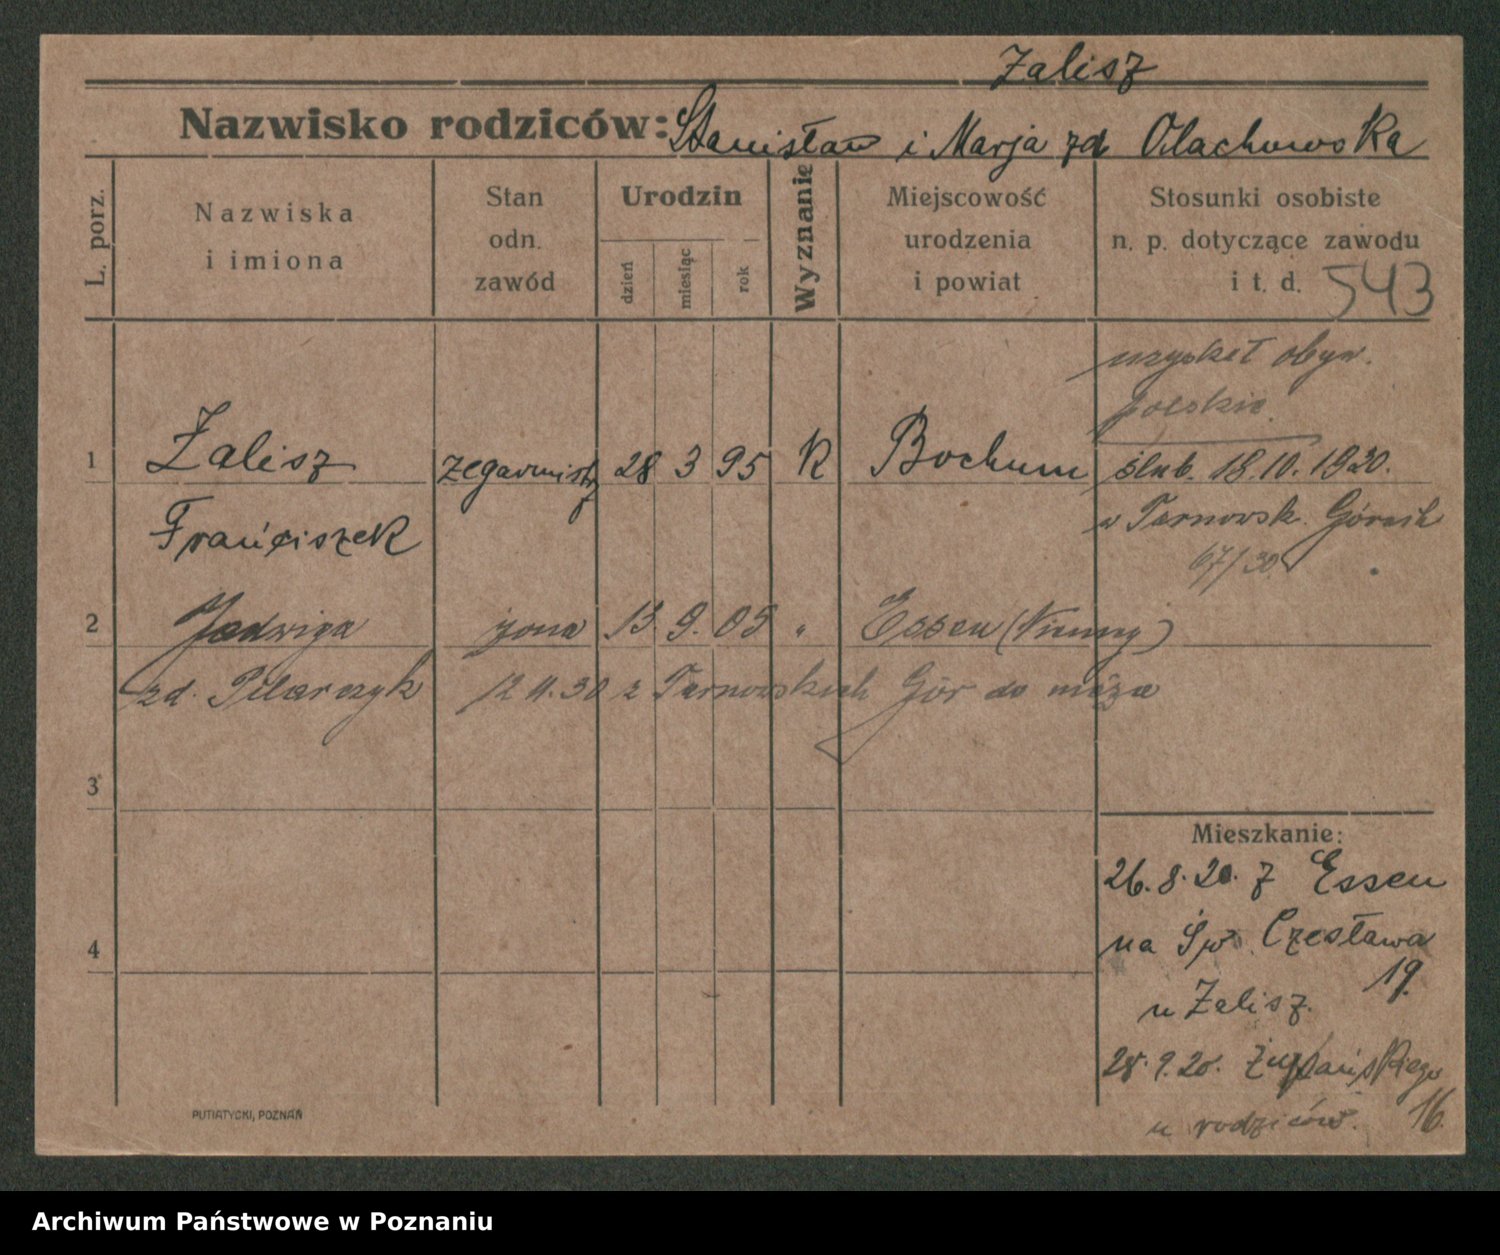 Zalisz
Nazwisko rodziców: Stanisław i Marja zd Olachowska
L. porz.
Nazwiska
i imiona
Stan
odn.
zawód
Urodzin
dzień
miesiąc
rok
Wyznanie
Miejscowość
urodzenia
i powiat
Stosunki osobiste
n. p. dotyczące zawodu
i t. d. 543
uzyskał obyw.
polskie.
1 Zalisz zegarmistrz 28 3 95 K Bochum ślub. 18.10.1920.
Franciszek w Tarnowsk. Górach
67/30
2 Jadwiga żona 13. 9. 05 " Essen (Niemcy)
zd. Pilarczyk 12 11. 30 z Tarnowskich Gór do męża
3
4
Mieszkanie:
26. 8. 20. z Essen
na Św. Czesława
19.
u Zalisz.
28. 9. 20. Żupańskiego
16.
u rodziców.
PUTIATYCKI, POZNAŃ
Archiwum Państwowe w Poznaniu